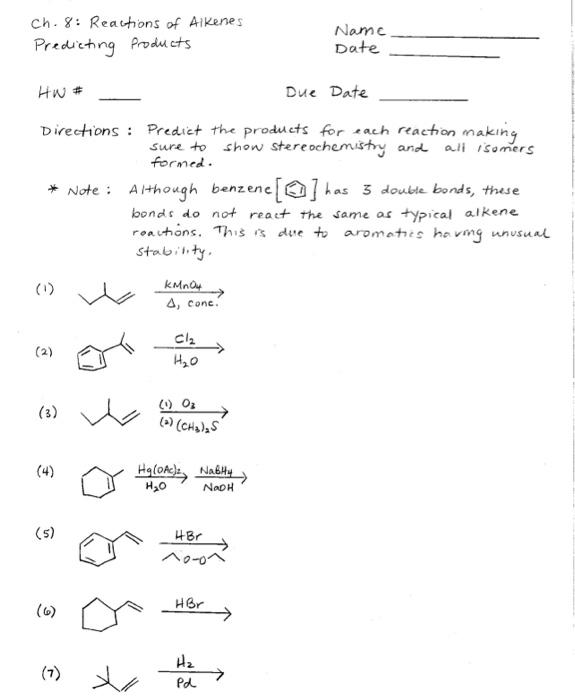 Ch. 8: Reactions of Alkenes
Predicting Products
Name
Date
HW #
Due Date
Directions: Predict the products for each reaction making
sure to show stereochemistry and all isomers
formed.
* Note: Although benzene [ ] has 3 double bonds, these
bonds do not react the same as typical alkene
reactions. This is due to aromatics having unusual
stability.
(1) KMnO4
Δ, conc.
(2) Cl2
H2O
(3) (1) O3
(2) (CH3)2S
(4) Hg(OAc)2 NaBH4
H2O NaOH
(5) HBr
O-O
(6) HBr
(7) H2
Pd